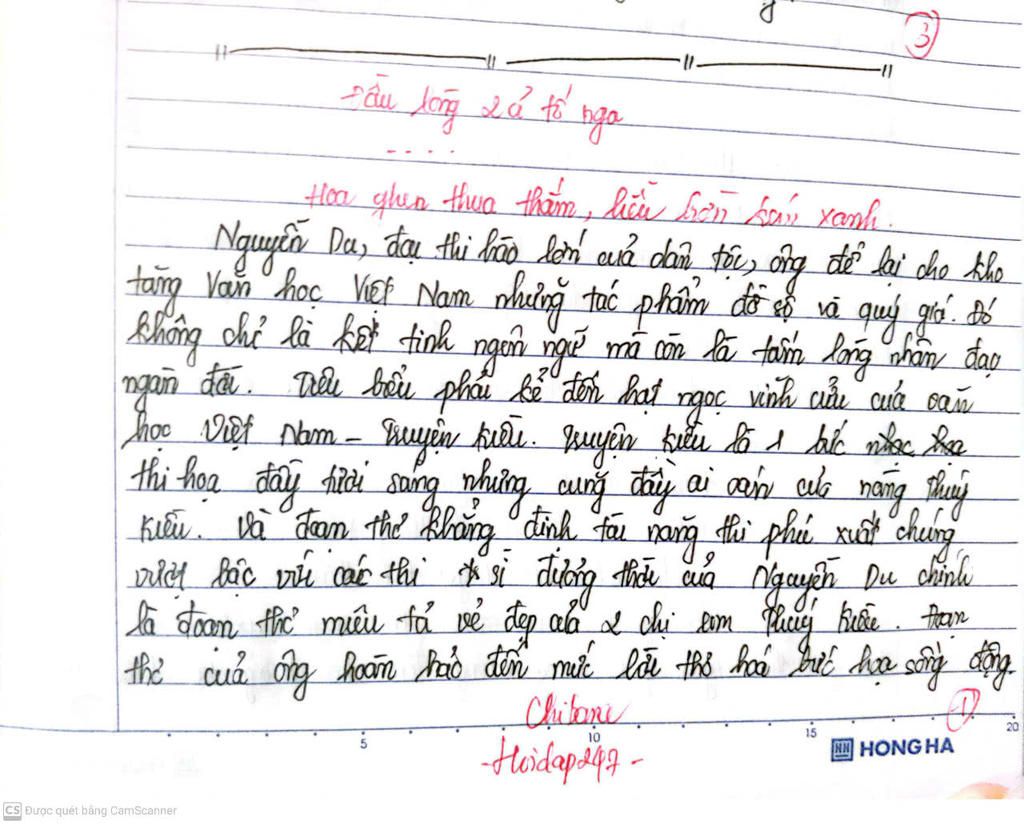 3
Đầu lòng 2 ả tố nga
....
Hoa ghen thua thắm, liễu hờn kém xanh.
Nguyễn Du, đại thi hào lớn của dân tộc, ông để lại cho kho
tàng Văn học Việt Nam những tác phẩm đồ sộ và quý giá. Đó
không chỉ là kết tinh ngôn ngữ mà còn là tấm lòng nhân đạo
ngàn đời. Tiêu biểu phải kể đến hạt ngọc vĩnh cửu của văn
học Việt Nam - Truyện Kiều. Truyện Kiều là 1 bức
thi hoạ đầy tươi sáng nhưng cũng đầy ai oán của nàng Thuý
Kiều. Và đoạn thơ khẳng định tài năng thi phú xuất chúng,
vượt bậc với các thi sĩ đương thời của Nguyễn Du chính
là đoạn thơ miêu tả vẻ đẹp của 2 chị em Thuý Kiều. Đoạn
thơ của ông hoàn hảo đến mức lời thơ hoá bức hoạ sống động.
Chibane
1
-Hoidap247-
5 10 15 20
HH HONG HA
CS Được quét bằng CamScanner